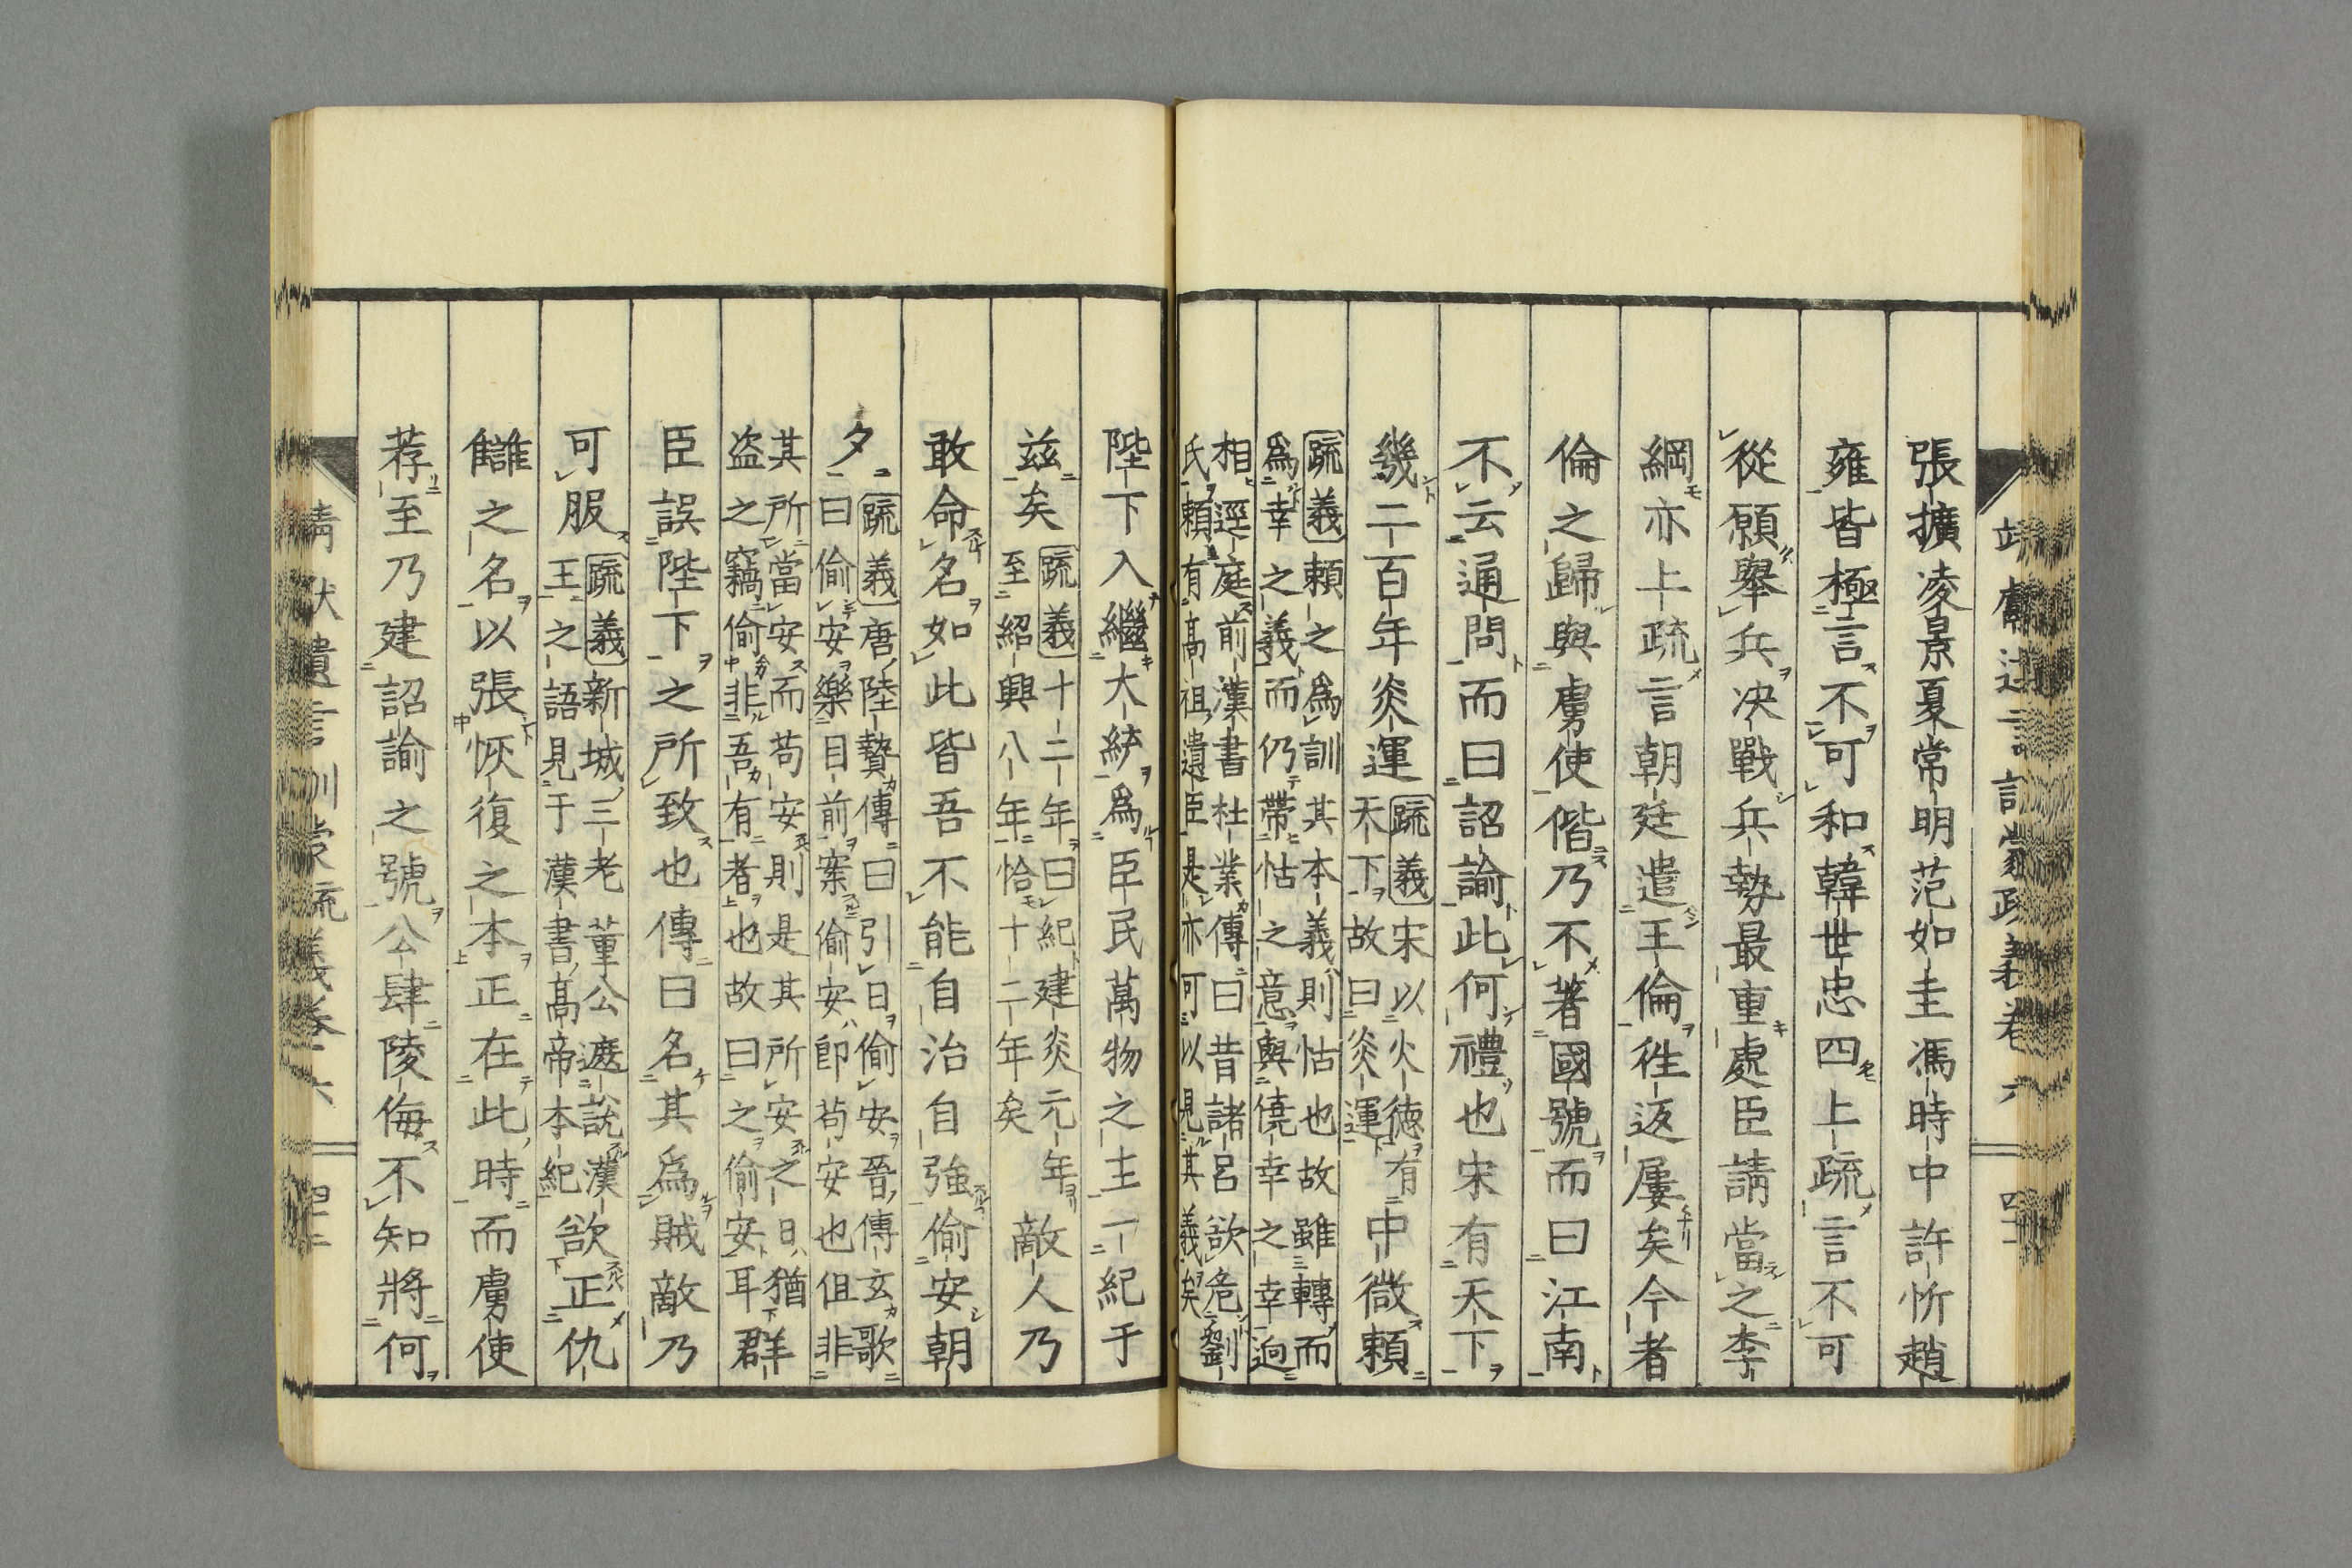 張擴凌景夏常明范如圭馮時中許忻趙
雍皆極言不可和韓世忠四上疏言不可
從願舉兵决戰兵勢最重處臣請當之李
綱亦上疏言朝廷遣王倫徃返屢矣今者
倫之歸與虜使偕乃不著國號而曰江南
不云通問而曰詔諭此何禮也宋有天下
幾二百年炎運
疏義宋以火徳有
天下故曰炎運
中微頼
疏義頼之為訓其本義則怙也故雖轉而
為幸之義而仍帶怙之意與僥幸之幸逈
相逕庭前漢書杜業傳曰昔諸呂欲危劉
氏頼有高祖遺臣是亦可以見其義矣
陛下入繼大統爲臣民萬物之主一紀于
兹矣
疏義十二年曰紀建炎元年
至紹興八年恰十二年矣
敵人乃
敢命名如此皆吾不能自治自強偷安朝
夕
疏義唐陸贄傳曰引日偷安晉傳玄歌
曰偷安樂目前案偷安即苟安也但非
其所當安而苟安則是其所安之日猶
盗之竊偷非吾有者也故曰之偷安耳
群
臣誤陛下之所致也傳曰名其爲賊敵乃
可服
疏義新城三老董公遮說漢
王之語見于漢書高帝本紀
欲正仇
讎之名以張恢復之本正在此時而虜使
荐至乃建詔諭之號公肆陵侮不知將何
靖献遺言訓蒙疏義卷六